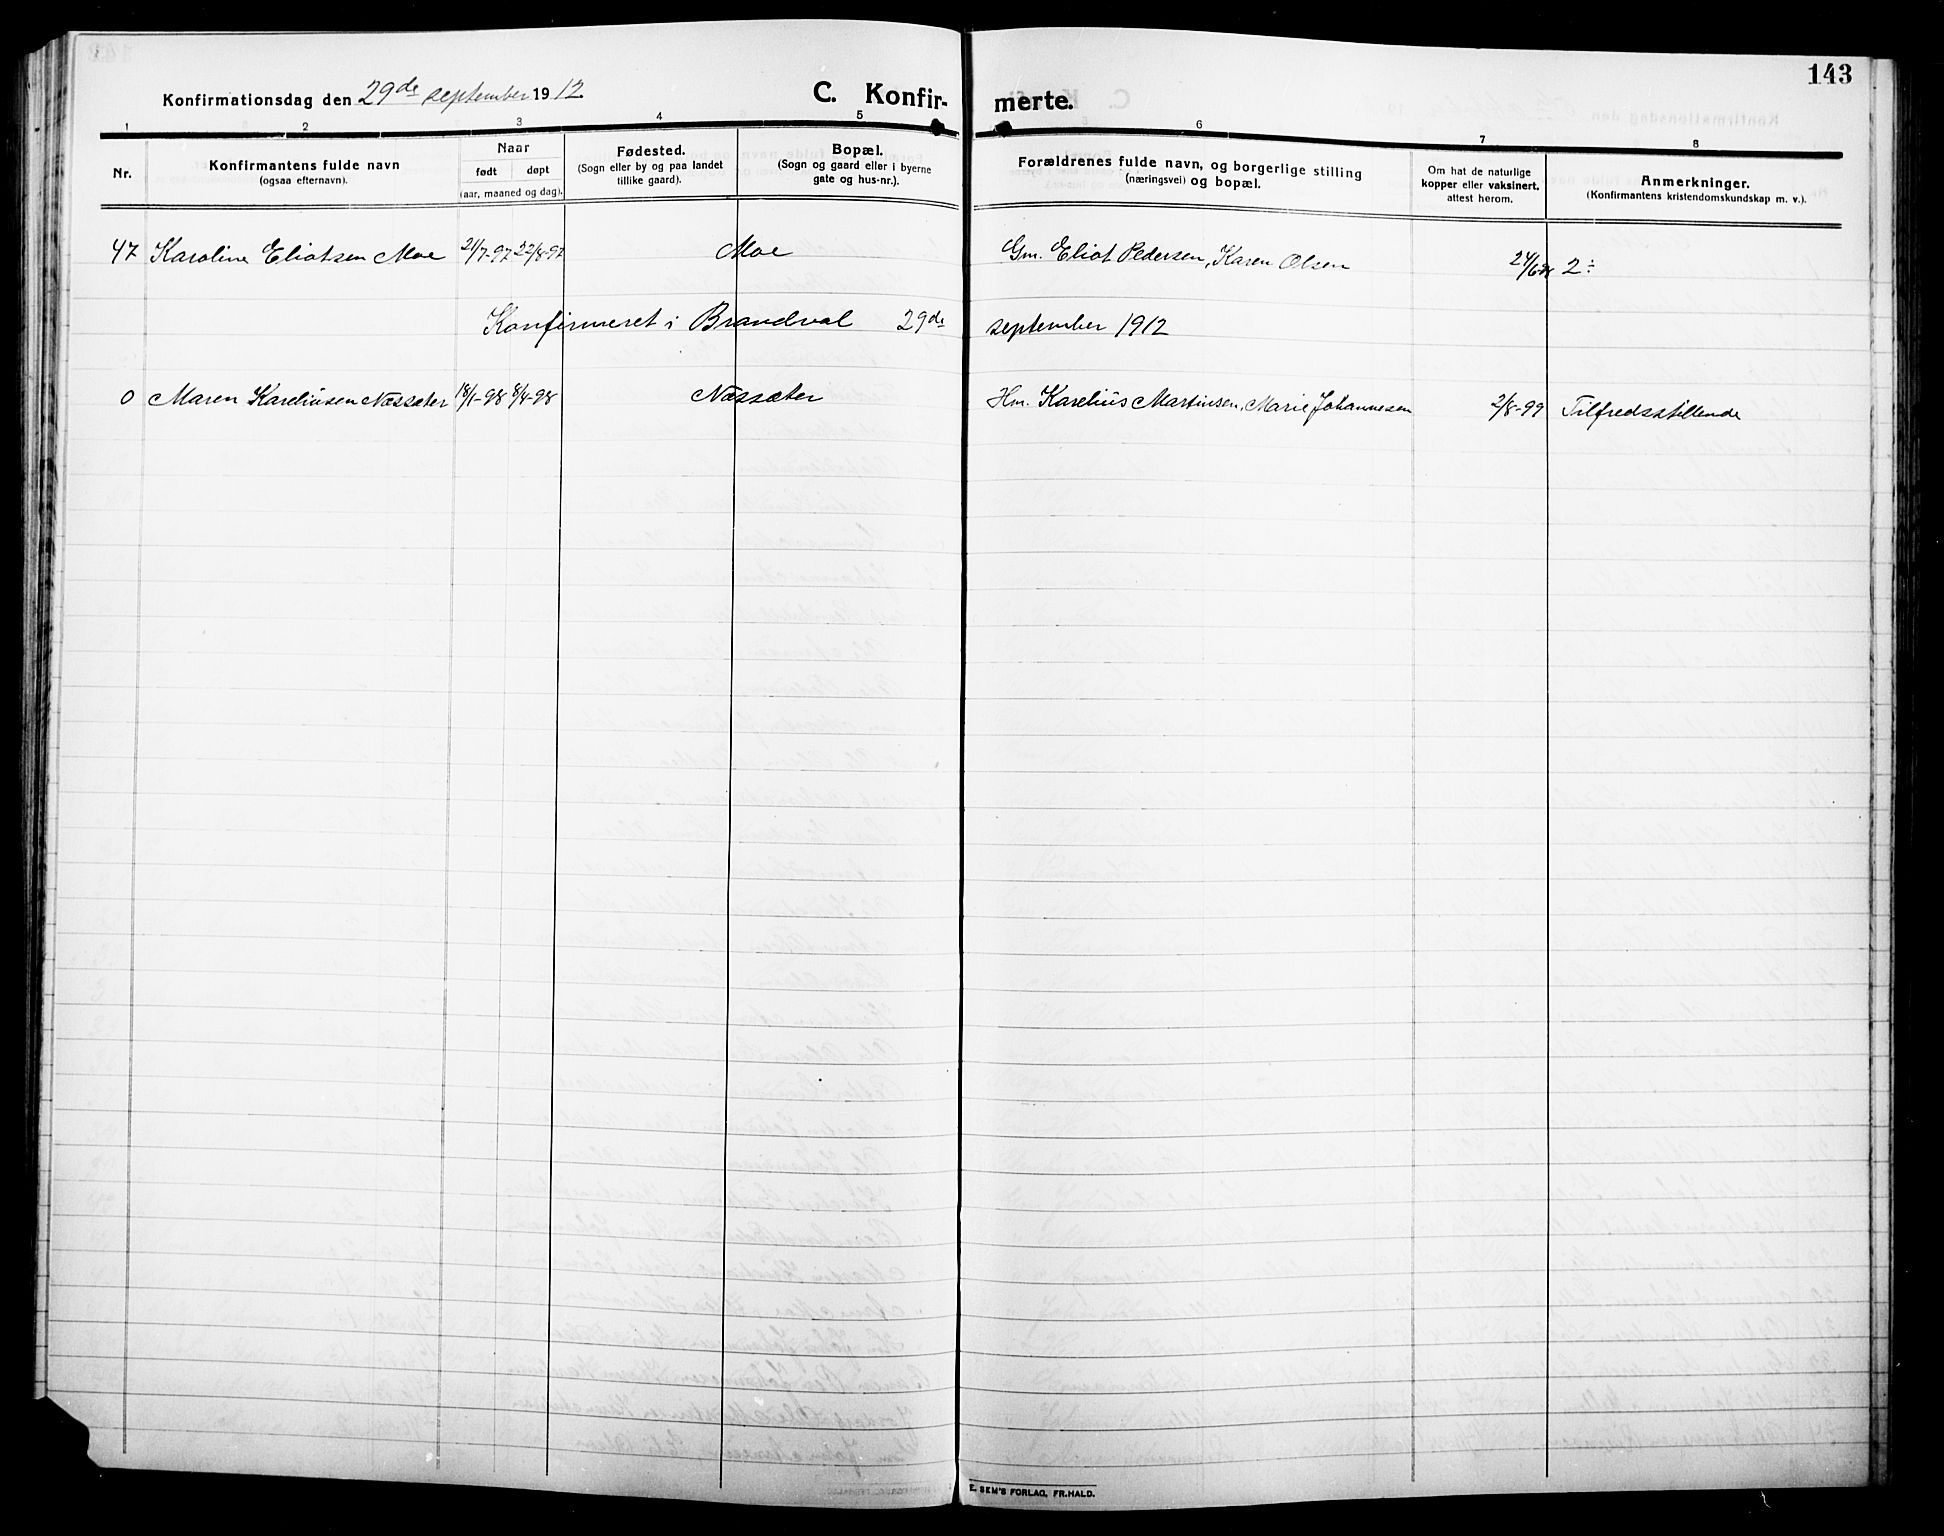 143
Konfirmationsdag den 29de september 1912.
C. Konfir-merte.
1 2 3 4 5 6 7 8
Nr.
Konfirmantens fulde navn
(ogsaa efternavn).
Naar
født døpt
(aar, maaned og dag).
Fødested.
(Sogn eller by og paa landet
tillike gaard).
Bopæl.
(Sogn og gaard eller i byerne
gate og hus-nr.).
Forældrenes fulde navn, og borgerlige stilling
(næringsvei) og bopæl.
Om hat de naturlige
kopper eller vaksinert,
attest herom.
Anmerkninger.
(Konfirmantens kristendomskundskap m. v.).
47 Karoline Eliotsen Moe 21/7-97 22/8-97 Moe Gm. Eliot Pedersen, Karen Olsen 2÷
Konfirmeret i Brandval 29de september 1912
0 Maren Kareliusen Næssæter 18/1-98 8/4-98 Næssæter Hm. Karelius Martinsen, Marie Johannesen 2/8-99 Tilfredsstillende
E. SEM'S FORLAG, FR.HALD.